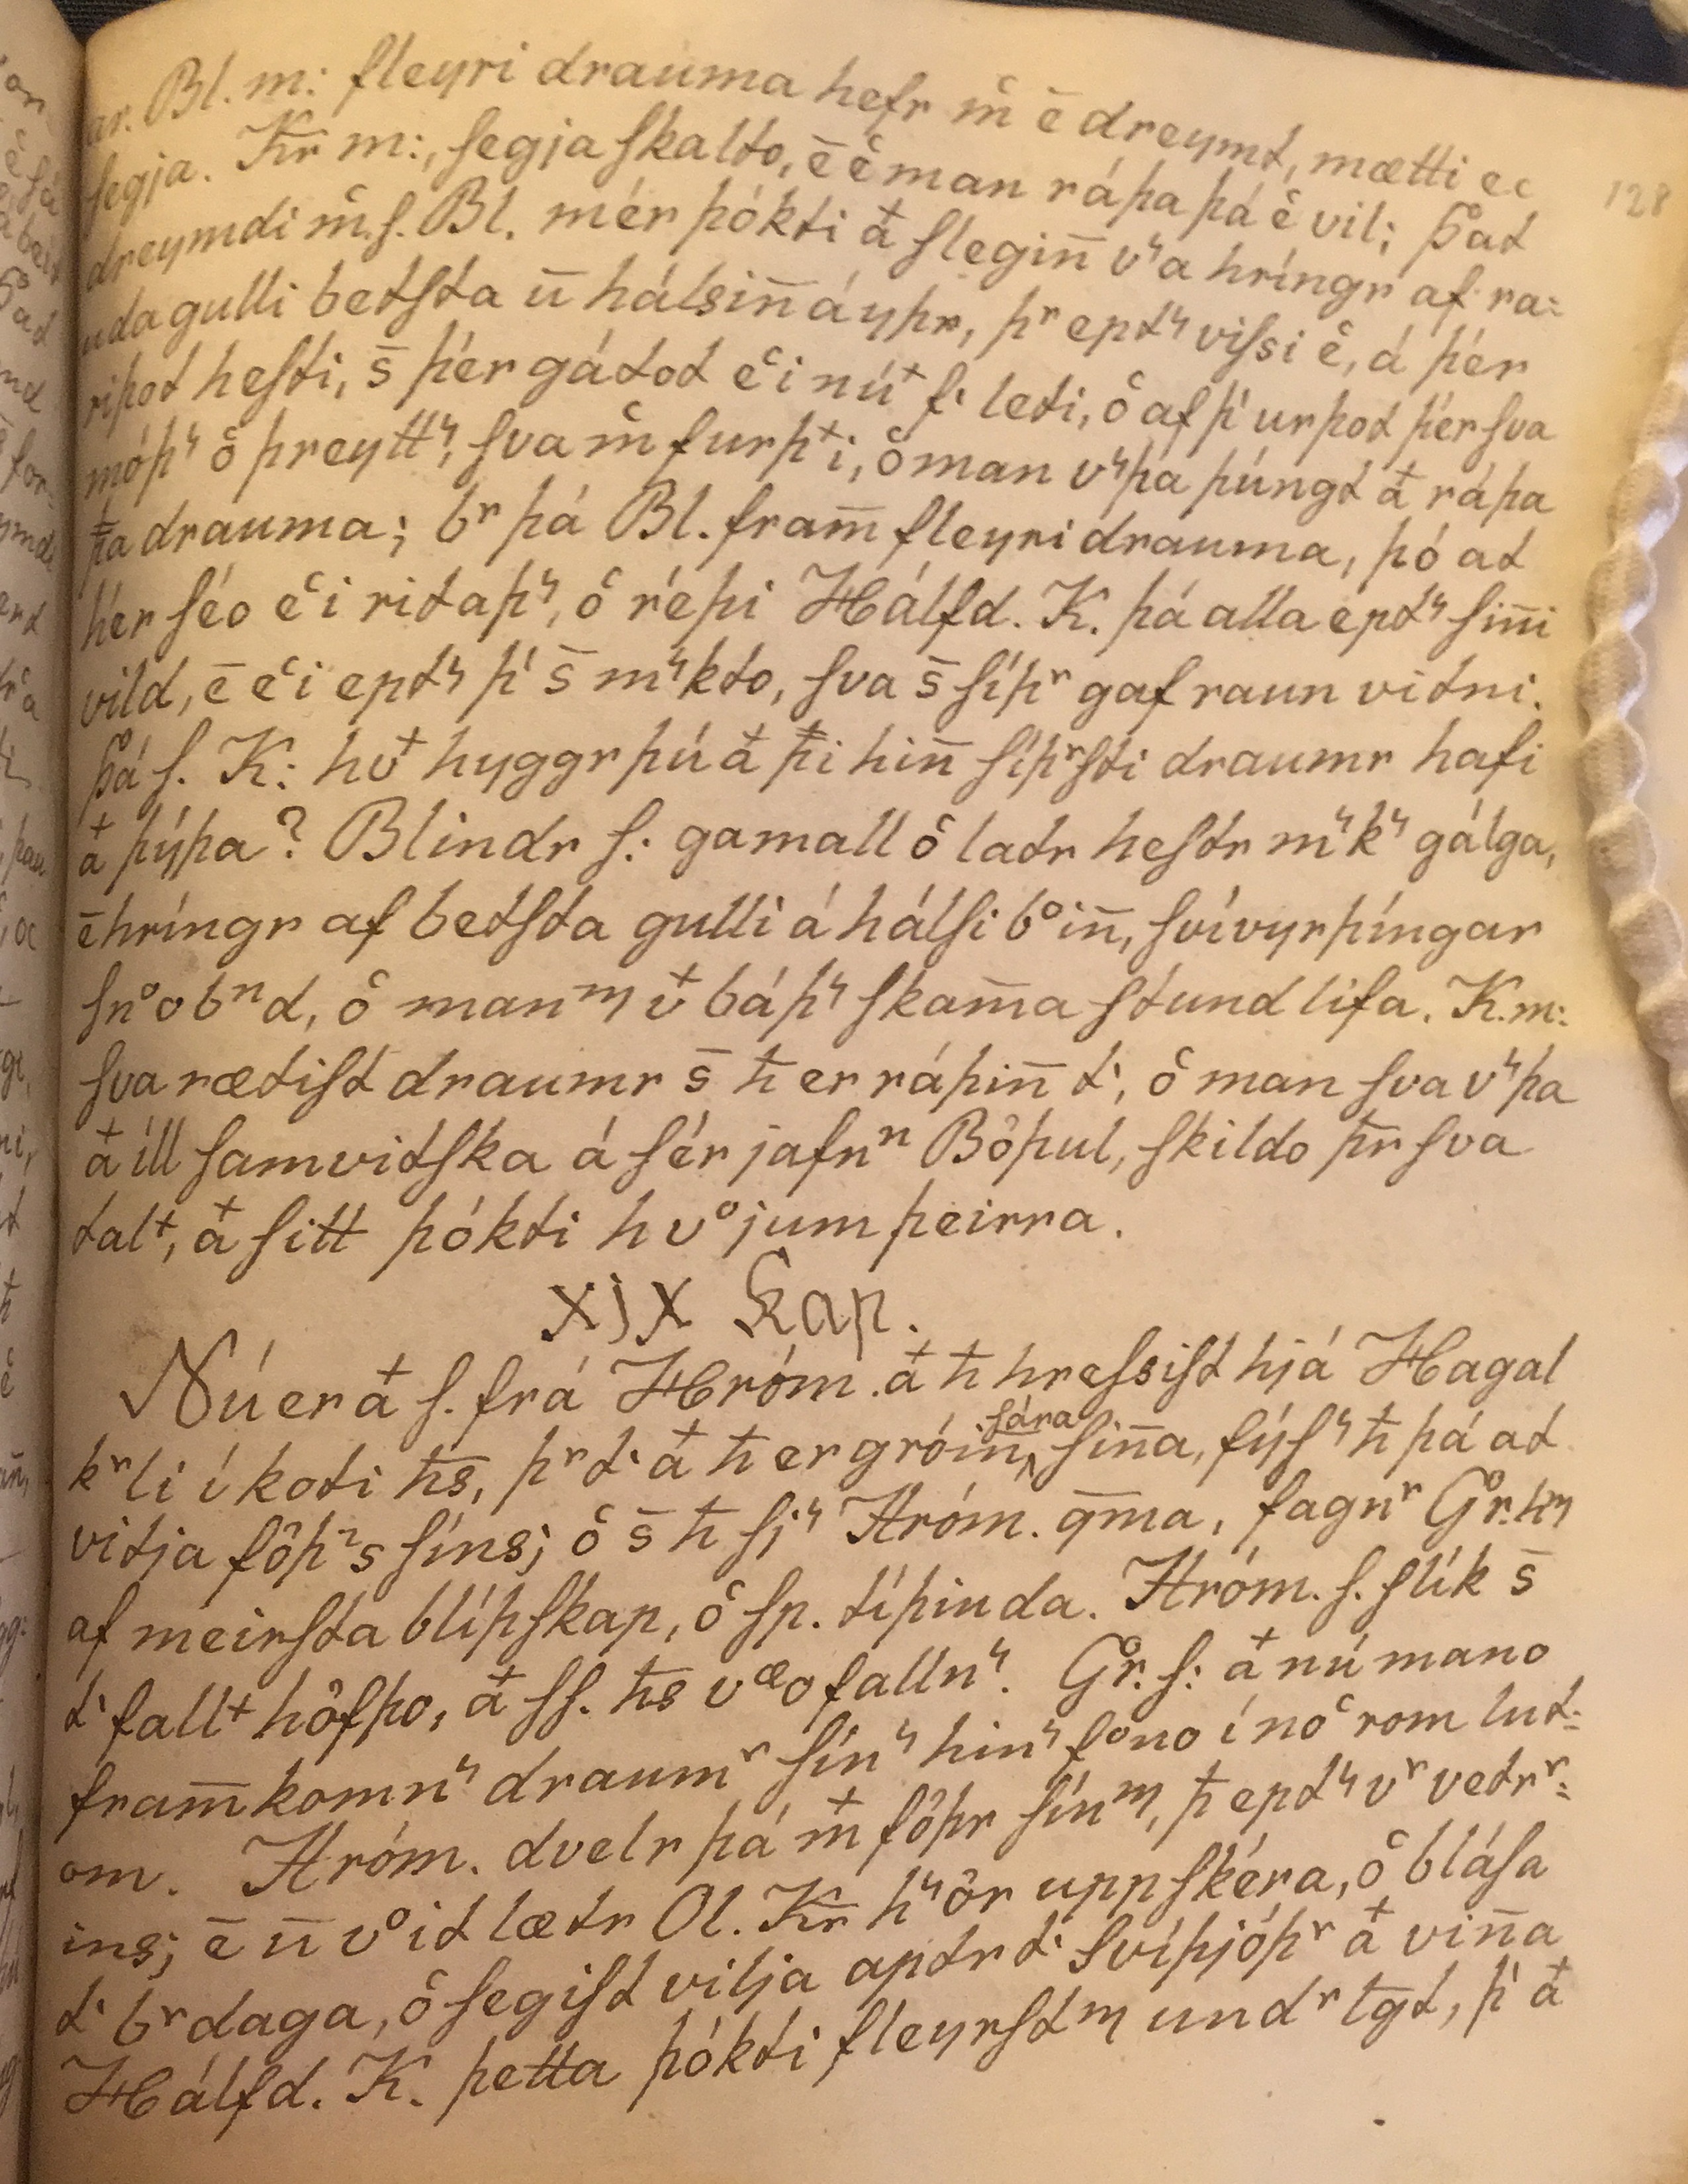 ar. Bl. m: fleyri drauma hefr m̊ ē dreymt, mætti ec
segja. Kr̄ m:, segja skalto, ē e̊ man ráþa þá e̊ vil; Þat
dreymdi m̊.s. Bl. mér þókti at slegiñ vʼa hríngr af ra:
uda gulli betsta ū hálsiñ á yþr, þr eptʼ vissi e̊, á þér
riþot hesti, s̄ þér gátot ec̊i nút fʼ leti, o̊ af þʼ urþot þér sva
móþʼ o̊ þreyttʼ, sva m̊ furþti, o̊ man vʼþa þúngt at ráþa
þa drauma; br þá Bl. fram̄ fleyri drauma, þó at
hér séo ec̊i ritaþʼ, o̊ réþi Hálfd. K. þá alla eptʼ siñi
vild, ē ec̊i eptʼ þʼ s̄ mʼkto, sva s̄ síþr gaf raun vitni.
Þá s. K: hvt hyggr þú at þ̄i hiñ síþrsti draumr hafi
at þýþa? Blindr s.: gamall o̊ latr hestr mʼkʼ gálga,
ē hríngr af betsta gulli á hálsi boiñ, svívyrþíngar
snoobnd, o̊ manm vt báþʼ skam̄a stund lifa. K.m:
sva rætist draumr s̄ ħ er ráþiñ tʼ, o̊ man sva vʼþa
at íll samvitska á sér jafnn Bôþul, skildo þr̄ sva
talt, at sitt þókti hvojum þeirra.
xjx Kap.
Nú er at s. frá Hróm. at ħ hressist hjá Hagal
krli í koti ħs, þr tʼ at ħ er gróiñ sára siña, fýsʼ ħ þá at
vitja fôþrs síns; o̊ s̄ ħ sjʼ Hróm. q̄ma, fagnr Gr. hm
af meirsta blíþskap, o̊ sp. tíþinda. Hróm. s. slík s̄
tʼ fallt hôfþo, at ss. ħs væo fallnʼ. Gr. s: at nú mano
fram̄komnʼ draumr sínʼ hinʼ fono í noc̊rom lut:
om. Hróm. dvelr þá mt fôþr sínm, þ̄ eptʼ vr vetrr:
ins; ē ū voit lætr Ol. Kr̄ hʼôr upp skéra, o̊ blása
tʼ brdaga, o̊ segist vilja aptr tʼ Svíþjóþr at viña
Hálfd. K. þetta þókti fleyrstm undr t̄gt, þʼ at